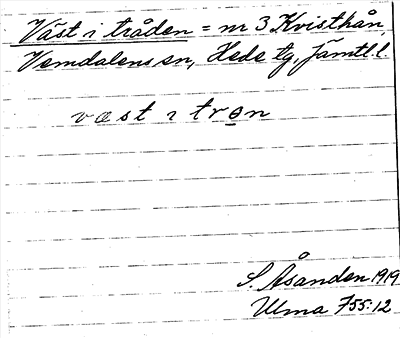 Väst i tråden = nr 3 Kvisthån,
Vemdalens sn, Hede tg, Jämtl. l.
väst ı trọn
S. Åsanden 1919
Ulma 755:12